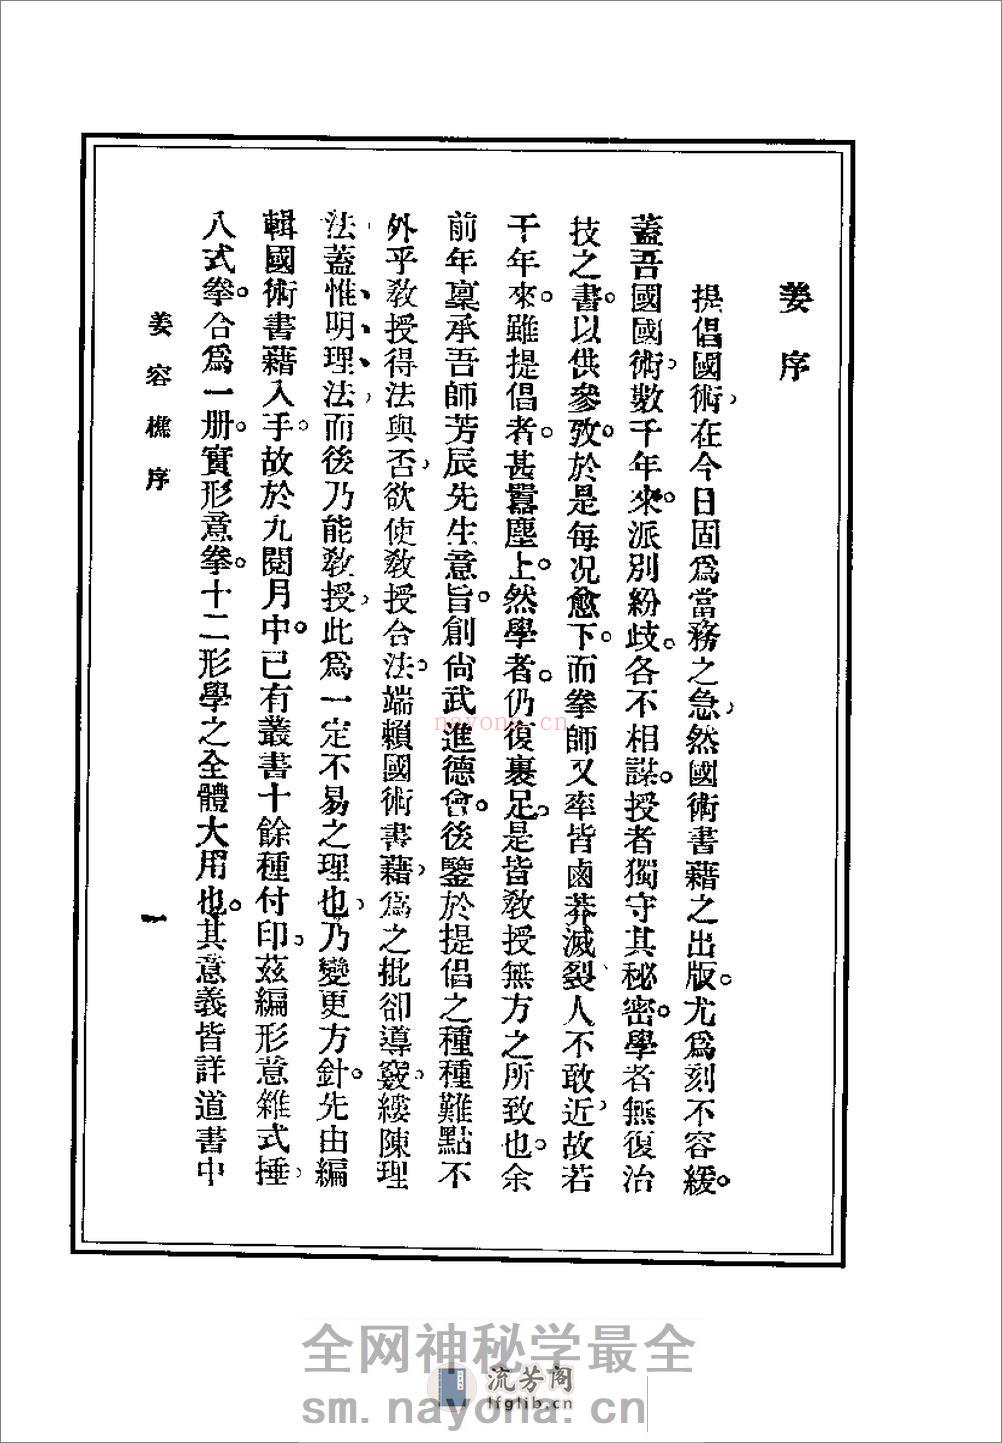 姜序
提倡國術,在今日固爲當務之急,然國術書藉之出版。尤爲刻不容緩。
蓋吾國國術,數千年來。派別紛歧。各不相謀。授者獨守其秘密。學者無復治
技之書。以供參攷。於是每况愈下。而拳師又率皆鹵莽滅裂、人不敢近,故若
干年來。雖提倡者。甚囂塵上。然學者。仍復裹足。是皆敎授無方之所致也。余
前年稟承吾師芳辰先生意旨。創尙武進德會。後鑒於提倡之種種難點不
外乎敎授得法與否,欲使敎授合法。端賴國術書藉,爲之批卻導窾。縷陳理
法,蓋惟、明、理、法,而後乃能敎授,此爲一定不易之理也,乃變更方針。先由編
輯國術書藉入手。故於九閱月中。已有叢書十餘種付印。茲編形意雜式捶,
八式拳。合爲一册。實形意拳。十二形學之全體大用也。其意義皆詳道書中
姜容樵序
一
nayong.cn
全网神秘学最全
流芳阁
lfglib.cn
sm.nayona.cn